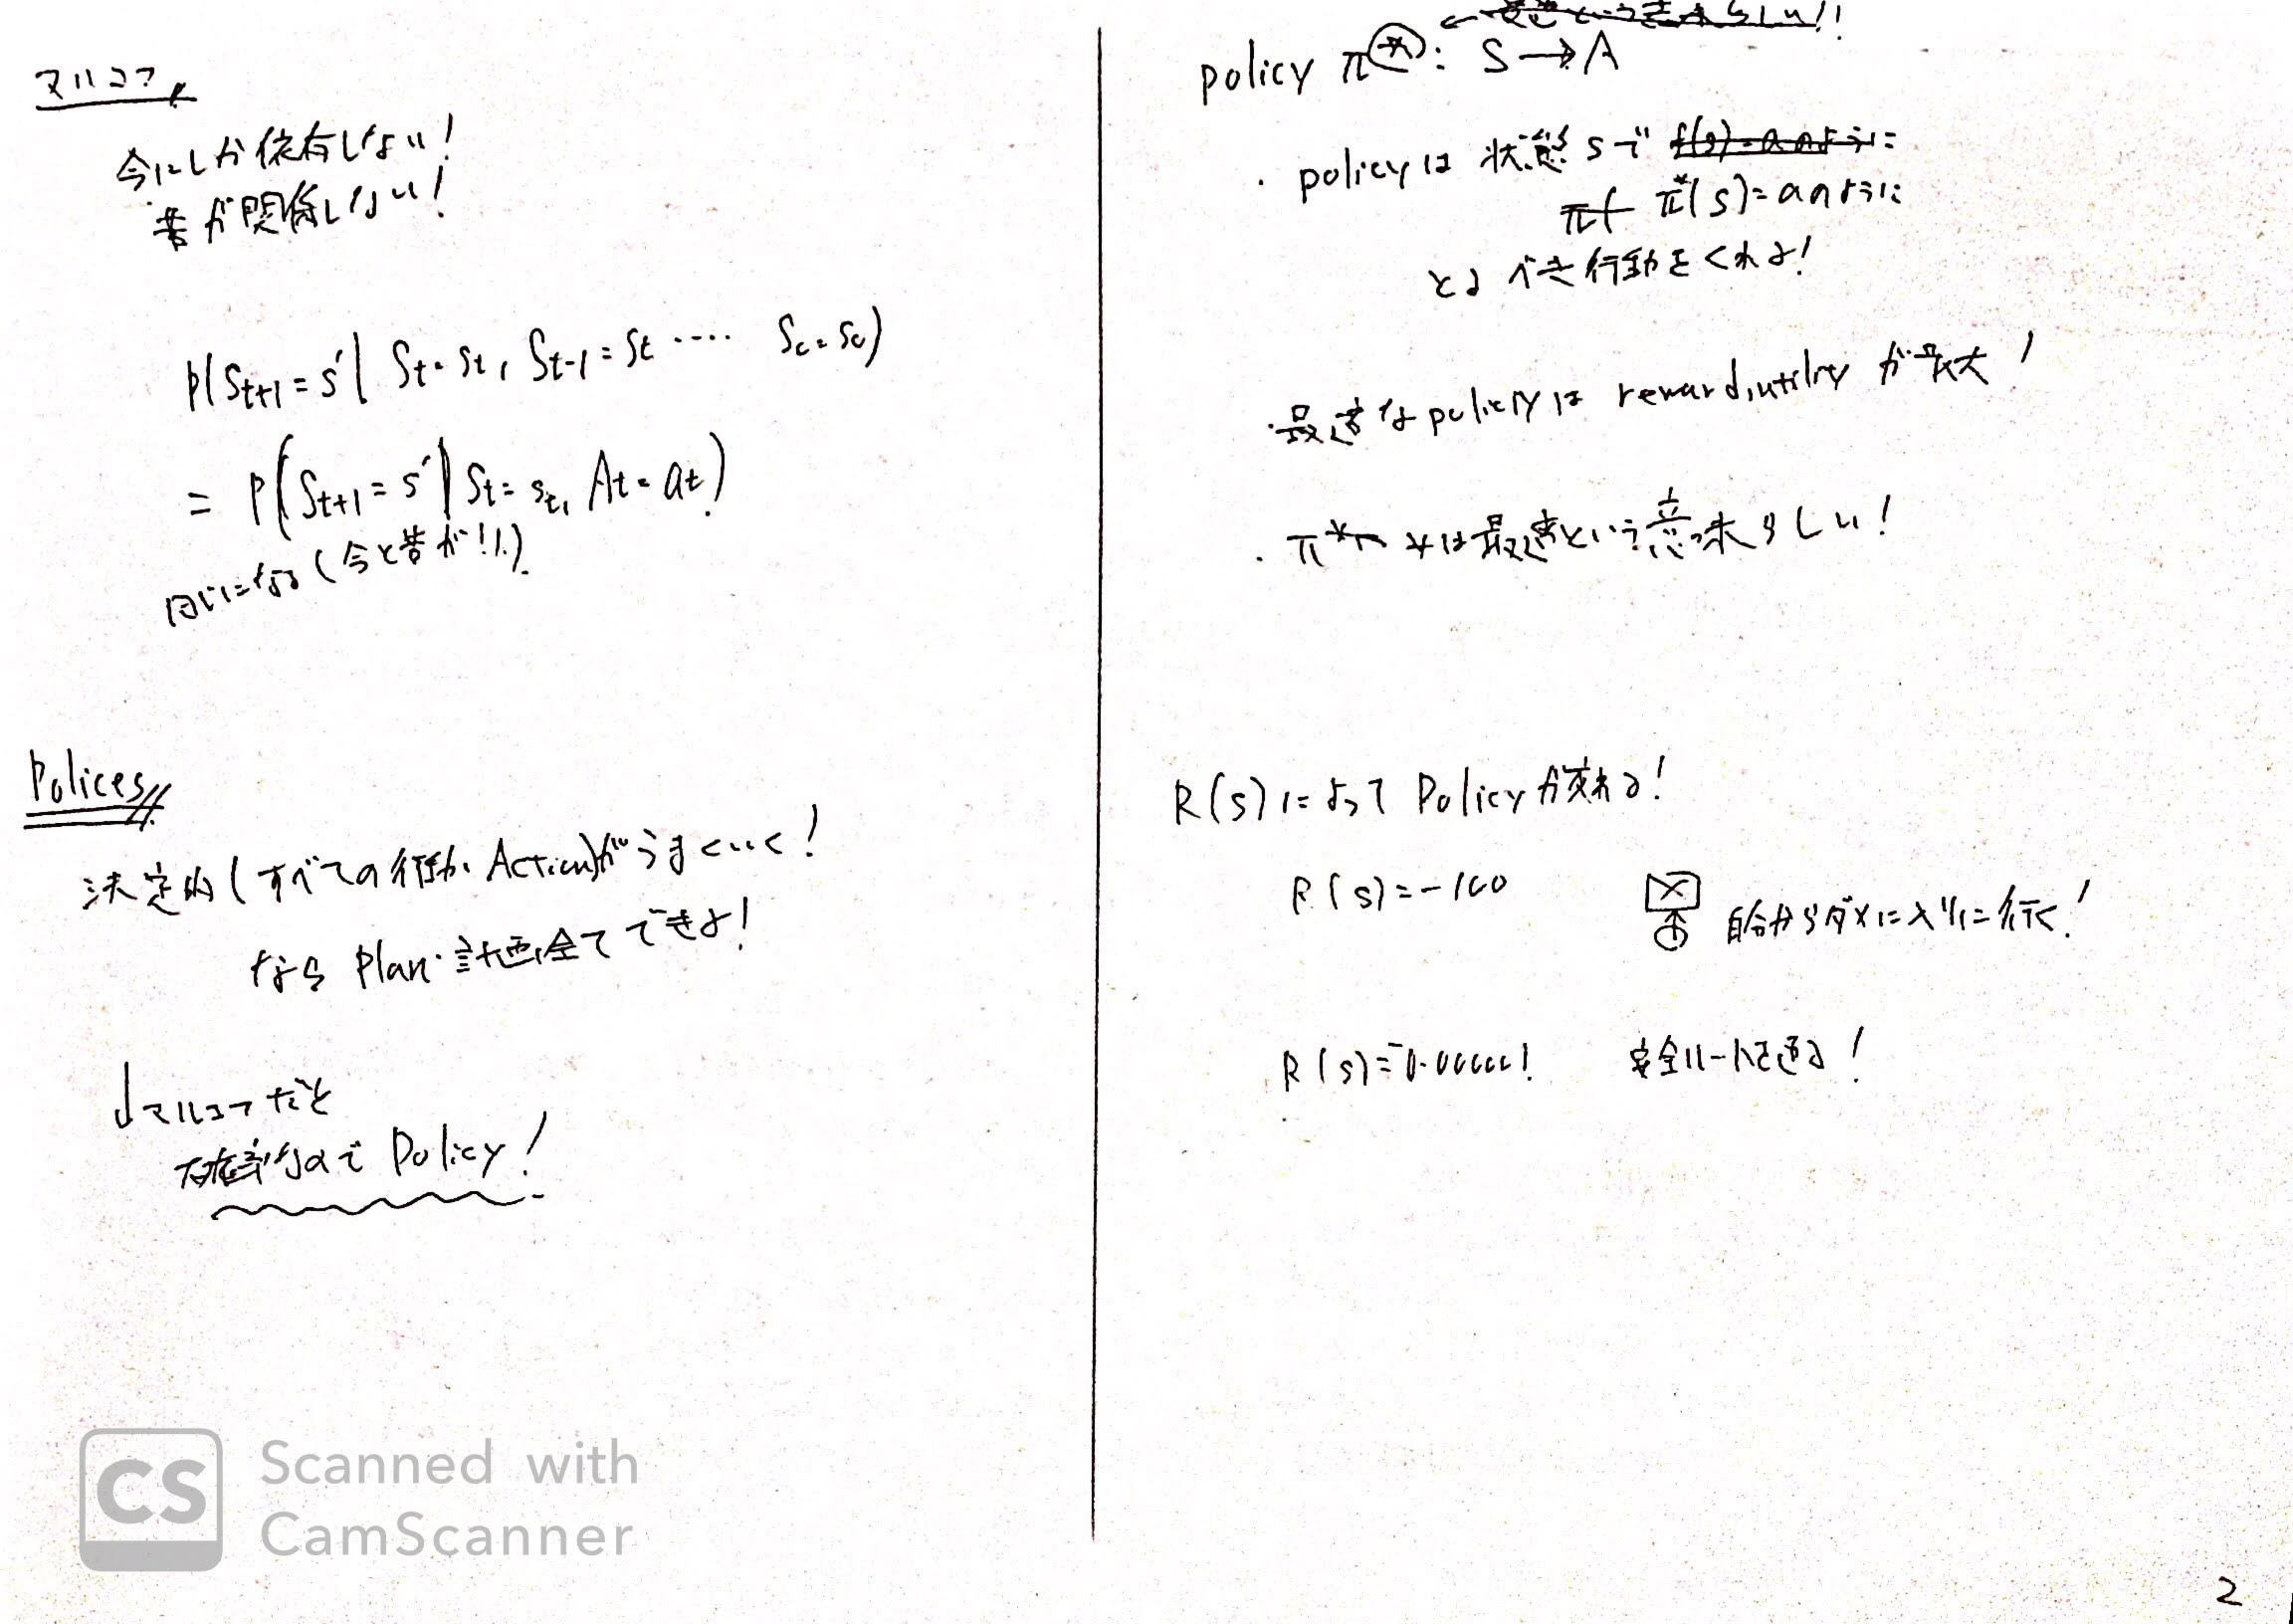 マルコフ
今にしか依存しない!
昔が関係しない!
P(St+1=s'| St=st, St-1=st ···· So=so)
= P(St+1=s'|St=st, At=at)
同じになる(今と昔が!!)
Polices
決定的(すべての行動、Action)がうまくいく!
なら Plan・計画全てできるよ!
↓マルコフだと
確率なので Policy!
policy π*: S→A
← 最適という意味らしい!!
・policyは 状態 sで f(s)=aのように
πf π*(s)=aのように
とるべき行動をくれるよ!
・最適なpolicyは reward,utilityが最大!
・π* ← *は最適という意味らしい!
R(s)によって Policyが変わる!
R(s)=-100
自分からダメに入りに行く!
R(s)=-0.00001
安全ルートを通る!
CS Scanned with
CamScanner
2